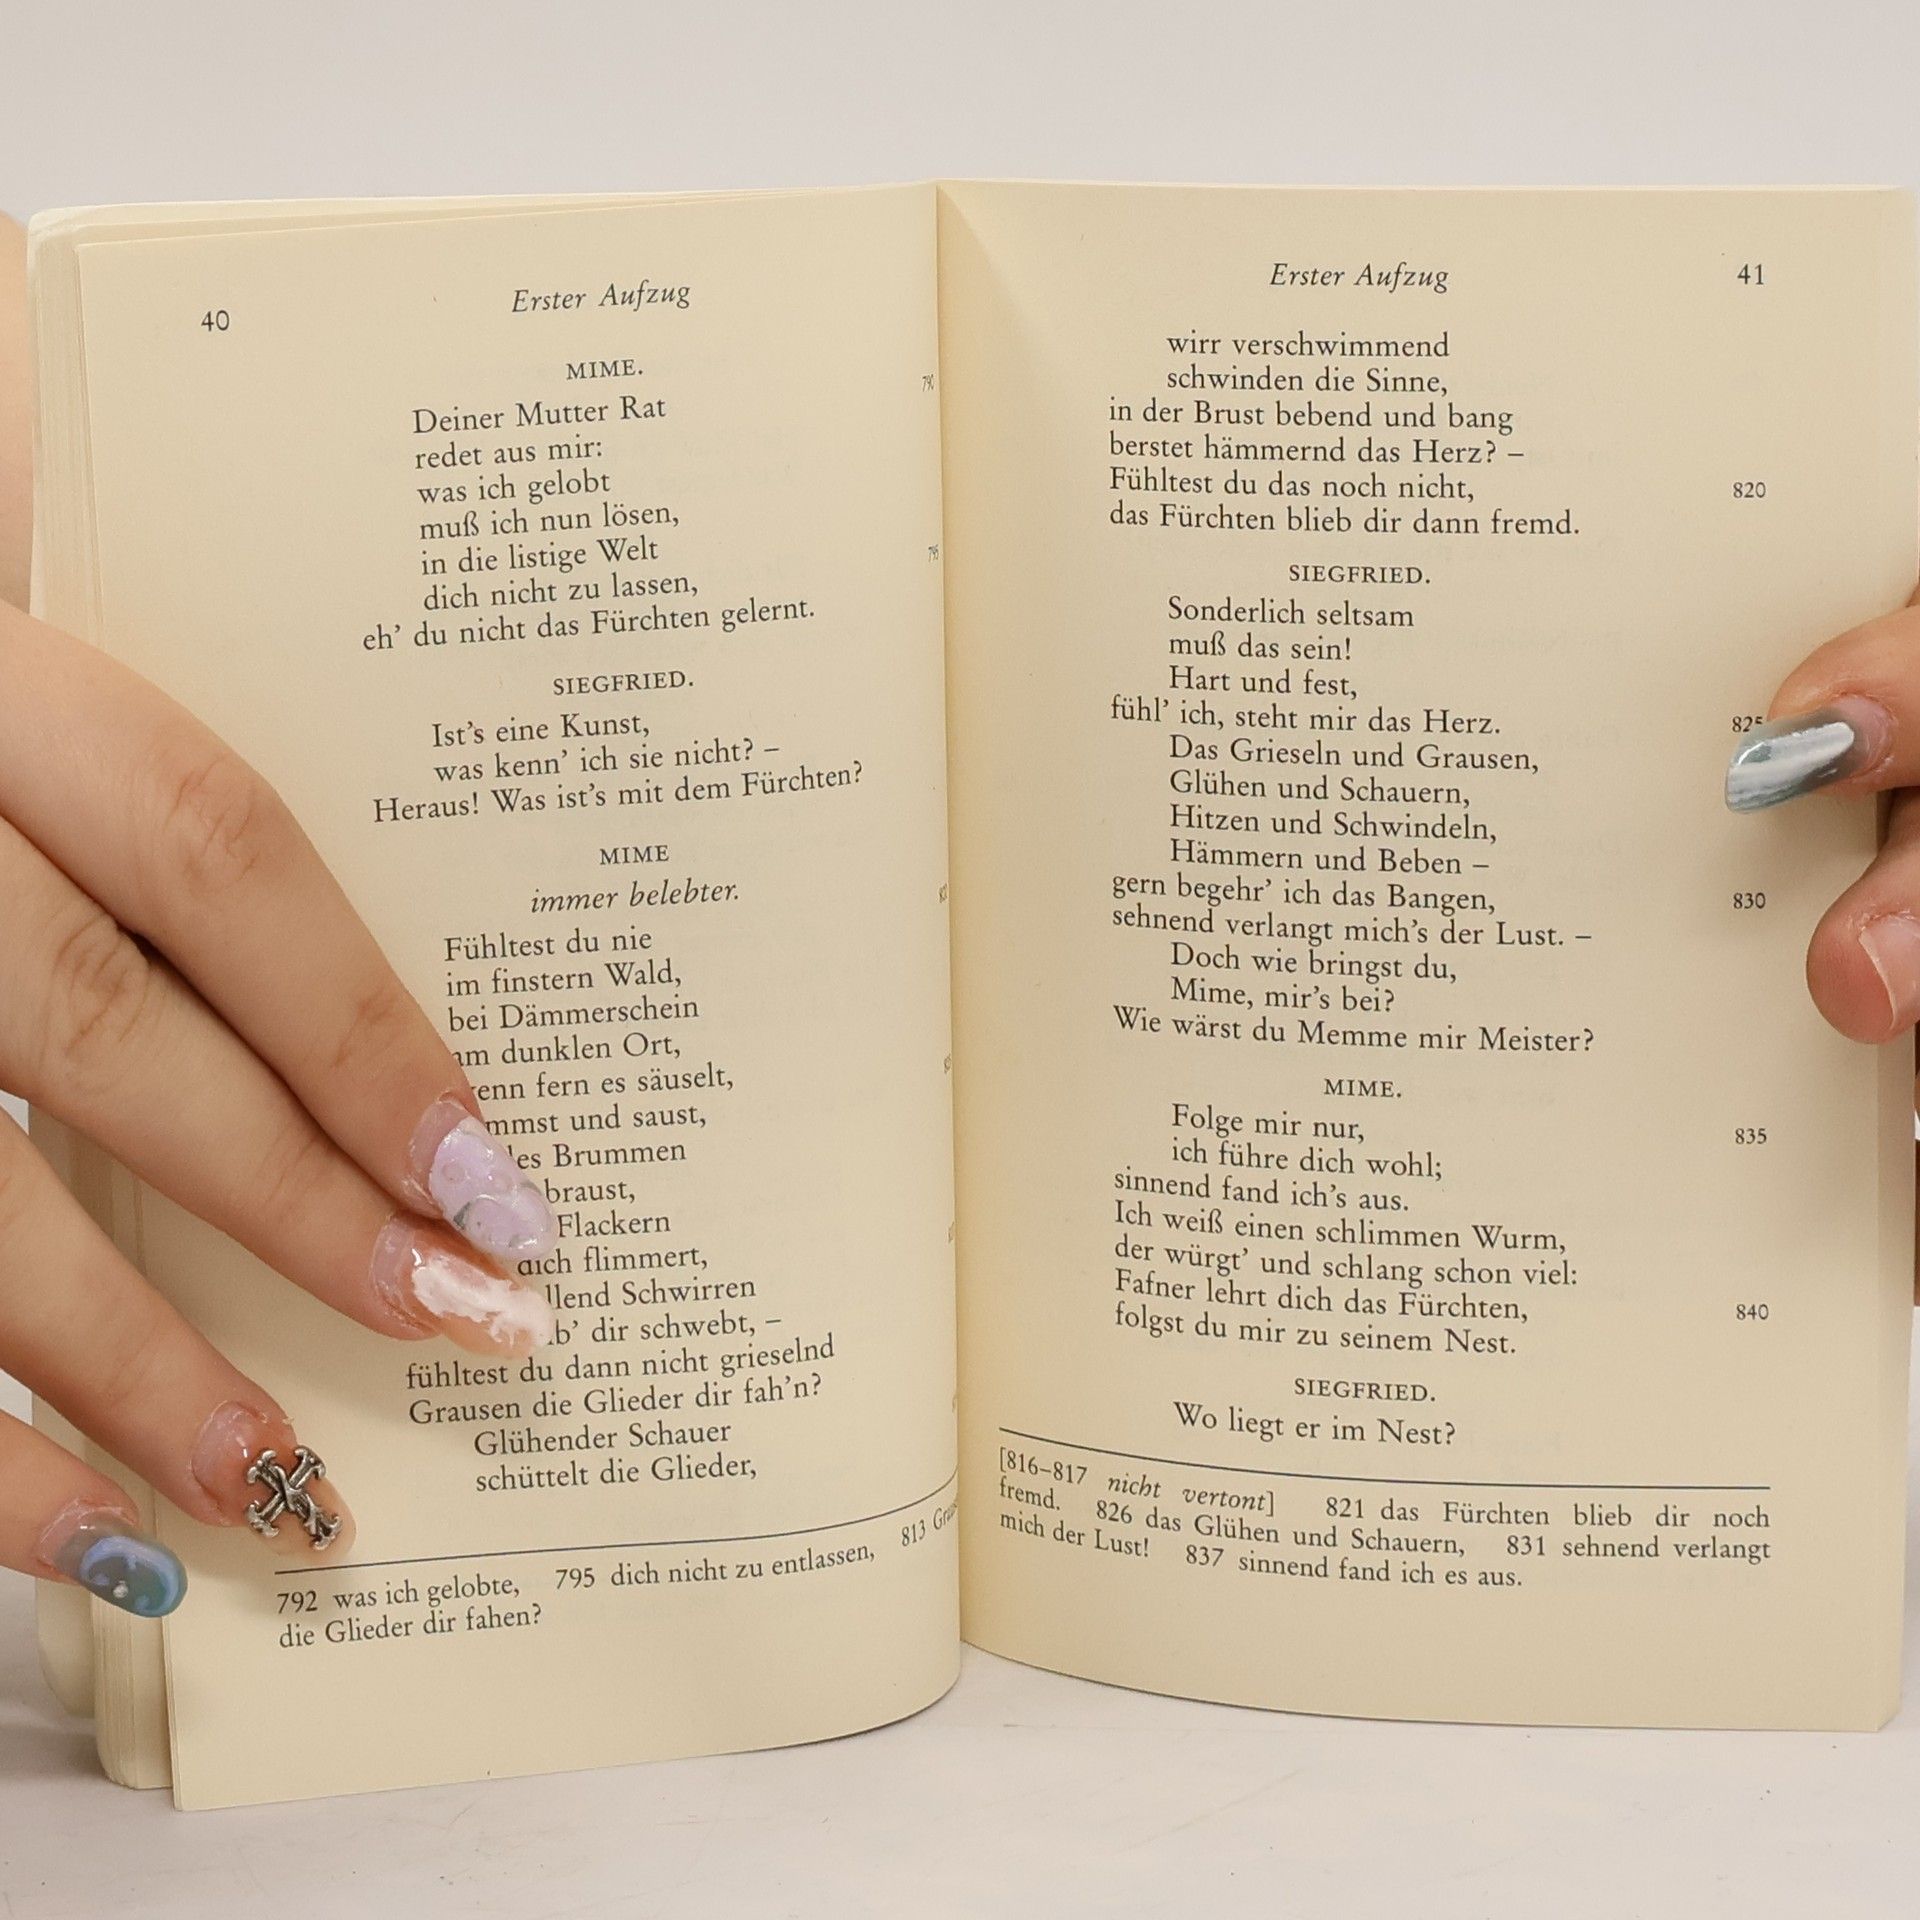 40
Erster Aufzug
MIME.
790
Deiner Mutter Rat
redet aus mir:
was ich gelobt
muß ich nun lösen,
in die listige Welt
795
dich nicht zu lassen,
eh’ du nicht das Fürchten gelernt.
SIEGFRIED.
Ist’s eine Kunst,
was kenn’ ich sie nicht? –
Heraus! Was ist’s mit dem Fürchten?
MIME
immer belebter.
Fühltest du nie
im finstern Wald,
bei Dämmerschein
dunklen Ort,
fern es säuselt,
und saust,
Brummen
braust,
Flackern
flimmert,
Schwirren
dir schwebt, –
fühltest du dann nicht grieselnd
Grausen die Glieder dir fah’n?
Glühender Schauer
schüttelt die Glieder,
792 was ich gelobte, 795 dich nicht zu entlassen, 813
die Glieder dir fahen?
Erster Aufzug
41
wirr verschwimmend
schwinden die Sinne,
in der Brust bebend und bang
berstet hämmernd das Herz? –
Fühltest du das noch nicht, 820
das Fürchten blieb dir dann fremd.
SIEGFRIED.
Sonderlich seltsam
muß das sein!
Hart und fest,
fühl’ ich, steht mir das Herz. 825
Das Grieseln und Grausen,
Glühen und Schauern,
Hitzen und Schwindeln,
Hämmern und Beben –
gern begehr’ ich das Bangen, 830
sehnend verlangt mich’s der Lust. –
Doch wie bringst du,
Mime, mir’s bei?
Wie wärst du Memme mir Meister?
MIME.
Folge mir nur, 835
ich führe dich wohl;
sinnend fand ich’s aus.
Ich weiß einen schlimmen Wurm,
der würgt’ und schlang schon viel:
Fafner lehrt dich das Fürchten, 840
folgst du mir zu seinem Nest.
SIEGFRIED.
Wo liegt er im Nest?
[816–817 nicht vertont] 821 das Fürchten blieb dir noch
fremd. 826 das Glühen und Schauern, 831 sehnend verlangt
mich der Lust! 837 sinnend fand ich es aus.